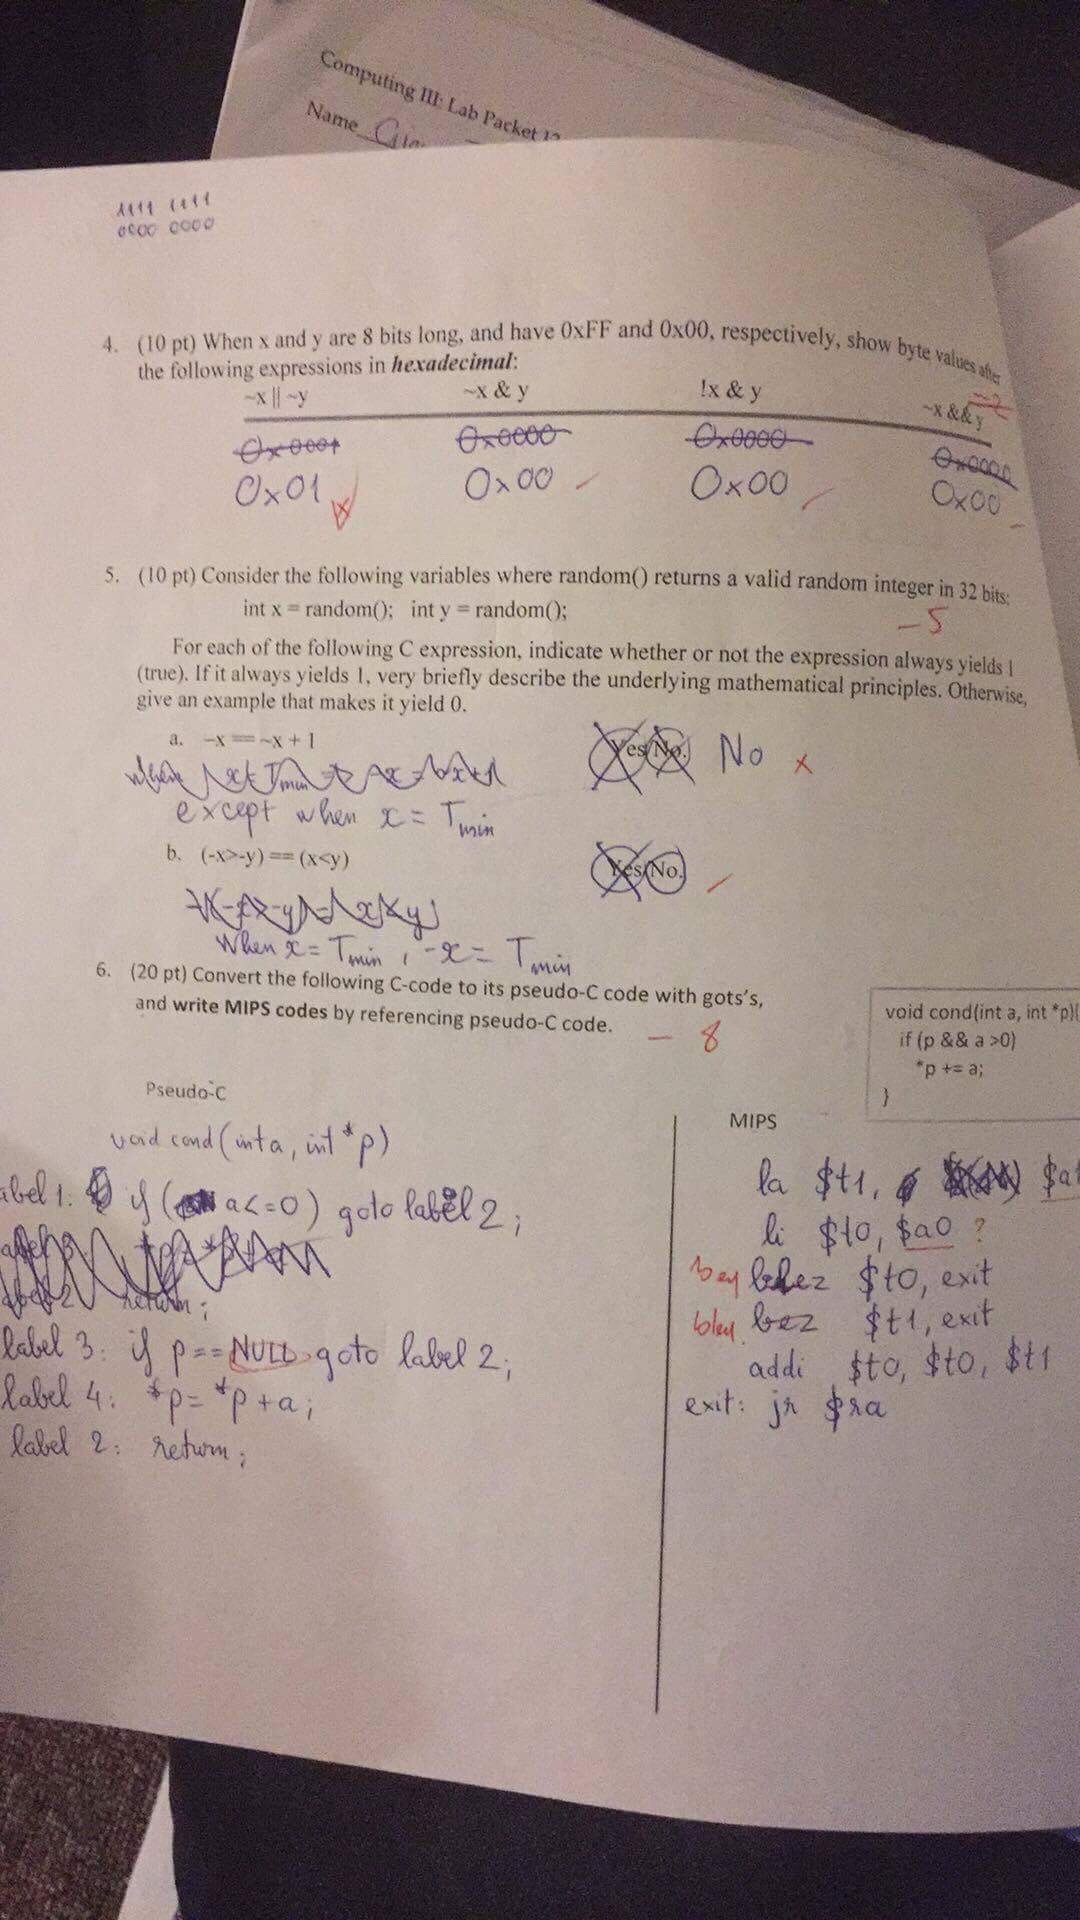 Computing III: Lab Packet
Name
1111 1111
0000 0000
4. (10 pt) When x and y are 8 bits long, and have 0xFF and 0x00, respectively, show byte values after
the following expressions in hexadecimal:
~x || ~y ~x & y !x & y ~x && y
-2
0x0001 0x0000 0x0000 0x0000
0x01 0x00 0x00 0x00
5. (10 pt) Consider the following variables where random() returns a valid random integer in 32 bits:
int x = random(); int y = random();
-5
For each of the following C expression, indicate whether or not the expression always yields 1
(true). If it always yields 1, very briefly describe the underlying mathematical principles. Otherwise,
give an example that makes it yield 0.
a. -x == ~x + 1 Yes/No. No x
except when x = Tmin
b. (-x>-y) == (x<y) Yes/No.
When x = Tmin, -x = Tmin
6. (20 pt) Convert the following C-code to its pseudo-C code with gots's,
and write MIPS codes by referencing pseudo-C code.
- 8
void cond(int a, int *p){
if (p && a >0)
*p += a;
}
Pseudo-C
void cond (int a, int *p)
abel 1: if ( a<=0) goto label 2;
return;
label 3: if p==NULL goto label 2;
label 4: *p = *p + a;
label 2: return;
MIPS
la $t1, $a1
li $t0, $a0 ?
$t0, exit
bez $t1, exit
addi $t0, $t0, $t1
exit: jr $ra